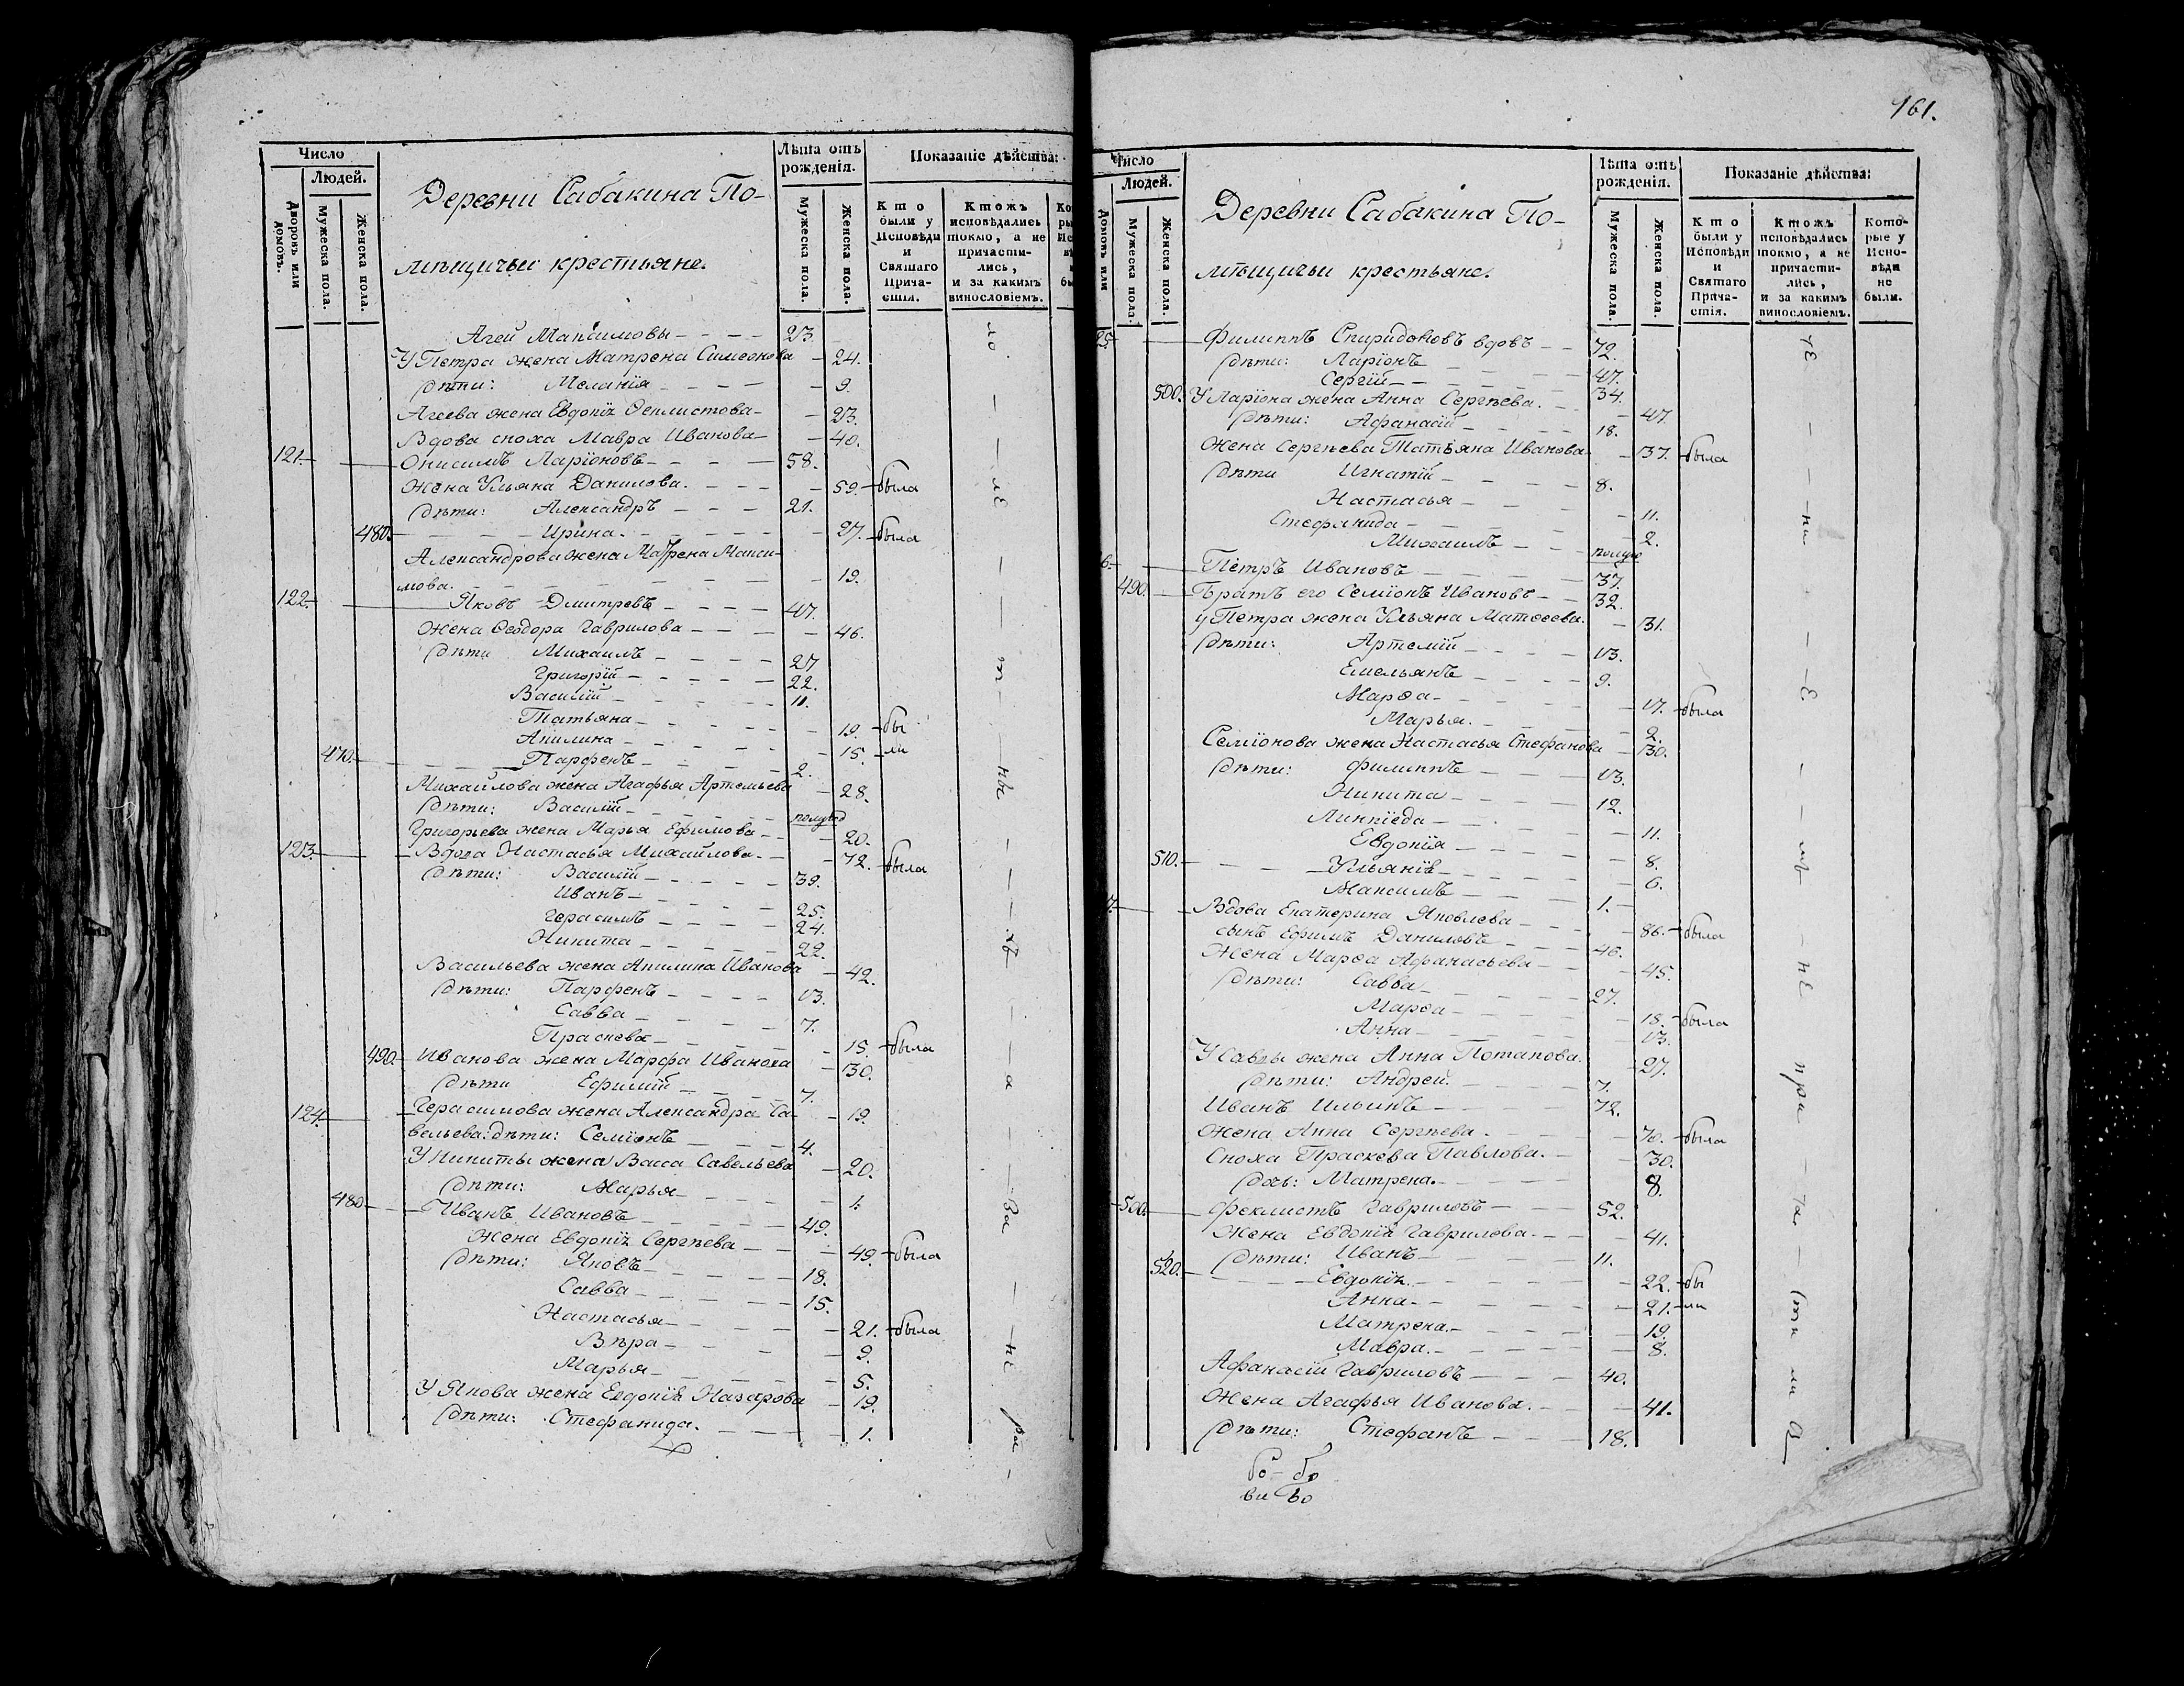 Число
Людей.
Дворовъ или домовъ.
Мужеска пола.
Женска пола.
Деревни Сабакина По-
мѣщичьи крестьяне.
Лѣта отъ рожденія.
Мужеска пола.
Женска пола.
Показаніе дѣйства:
Кто были у Исповѣди и Святаго Причастія.
Ктожъ исповѣдались токмо, а не причастились, и за какимъ винословіемъ.
Агей Максимовы 23.
У Петра жена Матрена Симеонова 24.
Дѣти: Меланія 9.
Агеева жена Евдокія Феклистова 23.
Вдова сноха Мавра Иванова 40.
121. Онисимъ Ларіоновъ 58.
Жена Ульяна Данилова. 59. была
Дѣти: Александръ 21.
480. Ирина. 27. была
Александрова жена Матрена Макси-
мова. 19.
122. Яковъ Дмитревъ 47.
Жена Ѳеодора Гаврилова 46.
Дѣти Михаилъ 27
Григорій 22.
Василій 11.
Татьяна 19. бы
Акилина 15. ли
470. Парфенъ 2.
Михайлова жена Агафья Артемьева 28.
Дѣти: Василій полугод
Григорьева жена Марья Ефимова 20.
123. Вдова Настасья Михайлова. 72. была
Дѣти: Василій 39.
Иванъ 25.
Герасимъ 24.
Никита 22.
Васильева жена Акилина Иванова 42.
Дѣти: Парфенъ 13.
Савва 7.
Праскева 15. была
490. Иванова жена Марфа Иванова 30.
Дѣти Ефимій 7.
124. Герасимова жена Александра Са- 19.
вельева: дѣти: Семіонъ 4.
У Никиты жена Васса Савельева 20.
Дѣти: Марья 1.
480. Иванъ Ивановъ 49.
Жена Евдокія Сергѣева 49. была
Дѣти: Яковъ 18.
Савва 15.
Настасья 21. была
Вѣра 9.
Марья 5.
У Якова жена Евдокія Назарова 19.
Дѣти: Стефанида. 1.
161.
Число
Людей.
Домовъ или
Мужеска пола.
Женска пола.
Деревни Сабакина По-
мѣщичьи крестьяне.
Лѣта отъ рожденія.
Мужеска пола.
Женска пола.
Показаніе дѣйства:
Кто были у Исповѣди и Святаго Причастія.
Ктожъ исповѣдались токмо, а не причастились, и за какимъ винословіемъ.
Которые у Исповѣди не были.
25. Филиппъ Спиридоновъ вдовъ 72.
Дѣти: Ларіонъ 47.
Сергій 34.
500. У Ларіона жена Анна Сергѣева. 47
Дѣти: Афанасій 18.
Жена Сергѣева Татьяна Иванова 37. была
Дѣти Игнатій 8.
Настасья 11.
Стефанида 2.
Михаилъ полуго
6. Петръ Ивановъ 37.
490. Братъ его Семіонъ Ивановъ 32.
у Петра жена Ульяна Матвеева. 31.
Дѣти: Артемій 13.
Емельянъ 9.
Марѳа 17. была
Марья. 2.
Семіонова жена Настасья Стефанова 30.
Дѣти: Филиппъ 13.
Никита 12.
11.
Евдокія 8.
510. Ульянія 6.
Максимъ 1.
7. Вдова Екатерина Яковлева 86. была
сынъ Ефимъ Даниловъ 46.
Жена Марѳа Афанасьева 45.
Дѣти: Савва 27.
Марѳа 18. была
Анна 13.
У Саввы жена Анна Потапова. 27.
Дѣти: Андрей. 7.
Иванъ Ильинъ 72.
Жена Анна Сергѣева. 70. была
Сноха Праскева Павлова. 30.
Дочь: Матрена. 8.
500. Феклистъ Гавриловъ 52.
Жена Евдокія Гаврилова. 41.
Дѣти: Иванъ 11.
520. Евдокія. 22. бы
Анна. 21. ли
Матрена. 19.
Мавра. 8.
Афанасій Гавриловъ 40.
Жена Агафья Иванова. 41.
Дѣти: Стефанъ 18.